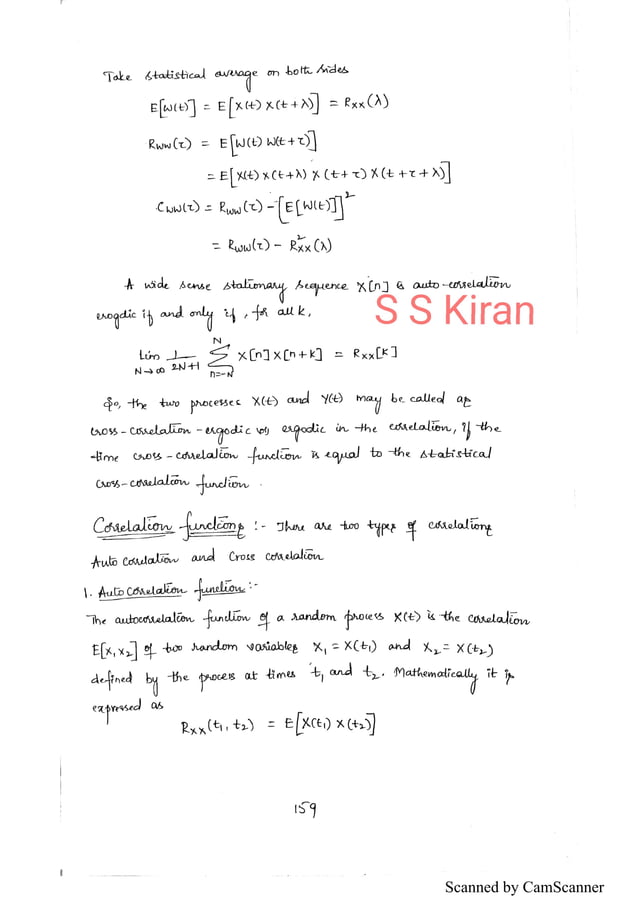 Take statistical average on both sides
E[W(t)] = E[X(t) X(t+λ)] = RXX(λ)
RWW(τ) = E[W(t) W(t+τ)]
= E[X(t) X(t+λ) X(t+τ) X(t+τ+λ)]
CWW(τ) = RWW(τ) - [E[W(t)]]²
= RWW(τ) - R²XX(λ)
A wide sense stationary sequence X[n] is auto-correlation
erogdic if and only if, for all k,
S S Kiran
lim N→∞ 1/(2N+1) Σ_{n=-N}^{N} X[n] X[n+k] = RXX[k]
So, the two processes X(t) and Y(t) may be called as
cross-correlation-ergodic or ergodic in the correlation, if the
time cross-correlation function is equal to the statistical
cross-correlation function.
Correlation functions :- There are two types of correlations
Auto correlation and Cross correlation
1. Auto correlation function :-
The autocorrelation function of a random process X(t) is the correlation
E[X₁X₂] of two random variables X₁ = X(t₁) and X₂ = X(t₂)
defined by the process at times t₁ and t₂. Mathematically it is
expressed as
RXX(t₁, t₂) = E[X(t₁) X(t₂)]
159
Scanned by CamScanner